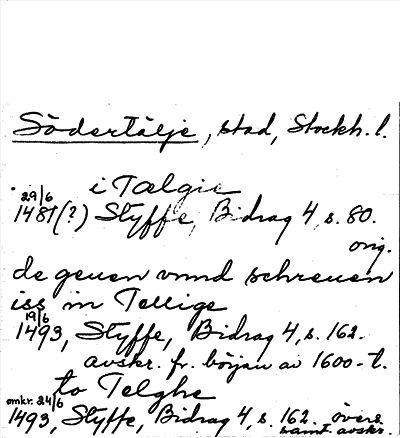 Södertälje, stad, Stockh. l.
i Tælgie
29/6
1481(?) Styffe, Bidrag 4, s. 80.
orig.
de geuen vnnd schreuen
iss in Tellige
19/6
1493, Styffe, Bidrag 4, s. 162.
avskr. fr. början av 1600-t.
to Telghe
omkr. 24/6
1493, Styffe, Bidrag 4, s. 162. övers.
samt. avskr.